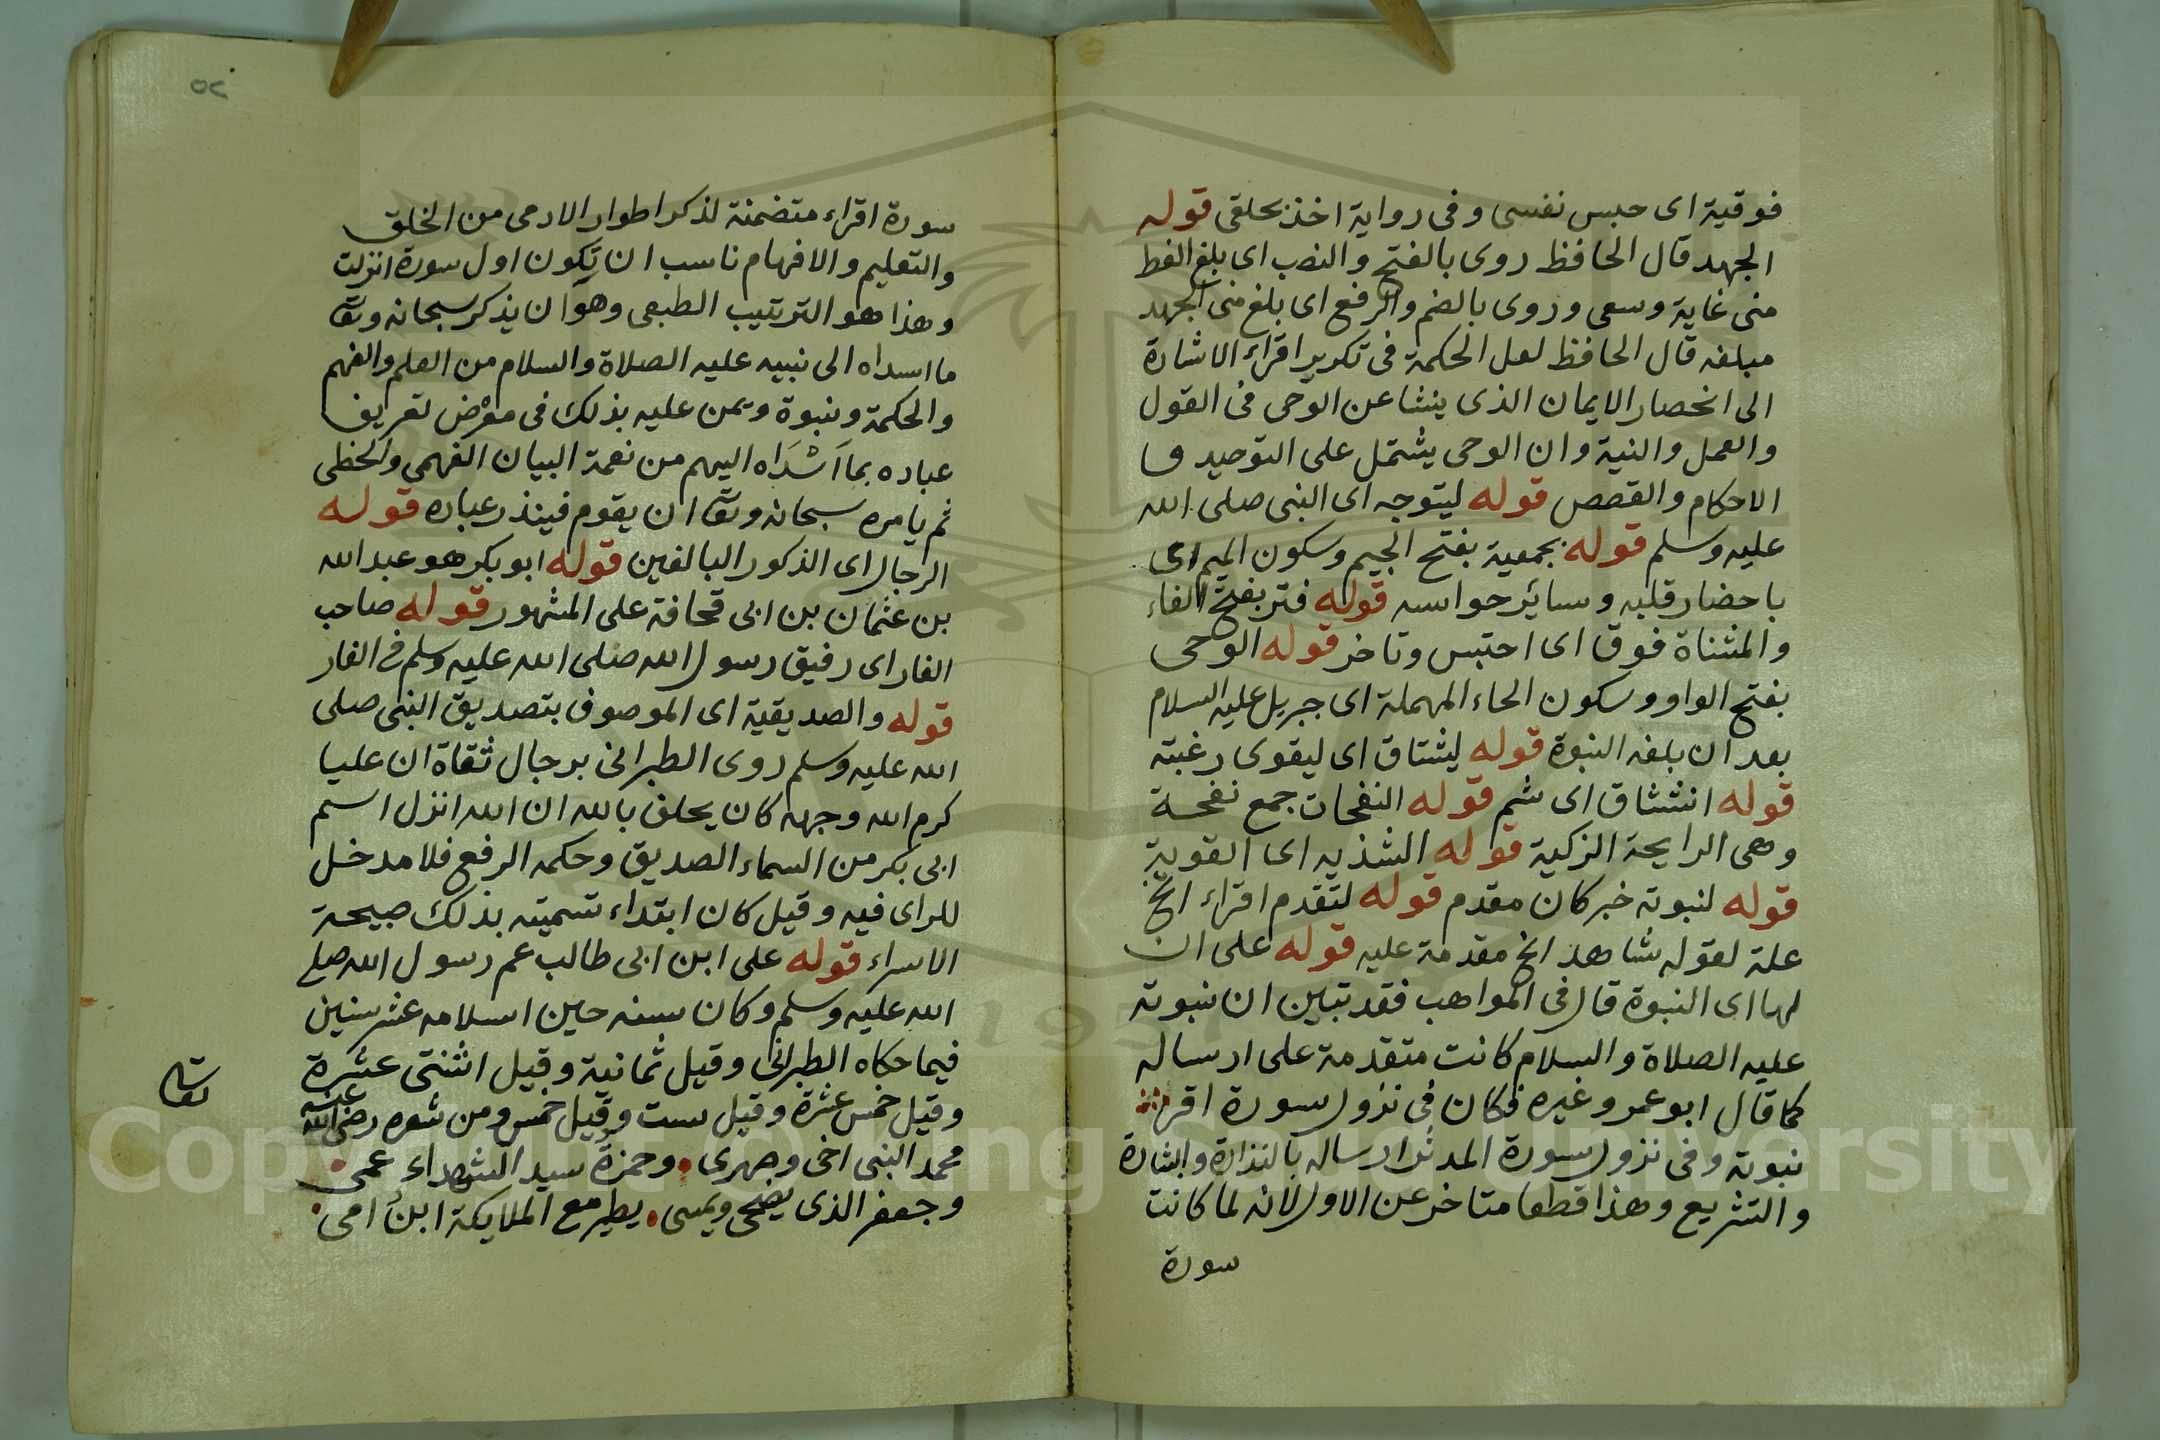 فوقية اى حبس نفسى وفى رواية اخذ بحلقى قوله
الجهد قال الحافظ روى بالفتح والنصب اى بلغ الغط
منى غاية وسعى وروى بالضم والرفع اى بلغ منى الجهد
مبلغه قال الحافظ لعل الحكمة فى تكرير اقراء الاشارة
الى انحصار الايمان الذى ينشا عن الوحى فى القول
والعمل والنية وان الوحى يشتمل على التوحيد و
الاحكام والقصص قوله ليتوجه اى النبى صلى الله
عليه وسلم قوله بجمعية بفتح الجيم وسكون الميم اى
باحضار قلبه وسائر حواسه قوله فتر بفتح الفاء
والمثناة فوق اى احتبس وتاخر قوله الوحى
بفتح الواو وسكون الحاء المهملة اى جبريل عليه السلام
بعد ان بلغه النبوة قوله ليشتاق اى ليقوى رغبته
قوله انتشاق اى شم قوله النفحات جمع نفحة
وهى الرايحة الزكية قوله الشذيه اى القوية
قوله لنبوته خبر كان مقدم قوله لتقدم اقراء الخ
علة لقوله شاهد الخ مقدمة عليه قوله على ان
لها اى النبوة قال فى المواهب فقد تبين ان نبوته
عليه الصلاة والسلام كانت متقدمة على ارساله
كما قال ابو عمر وغيره فكان فى نزول سورة اقرا
نبوته وفى نزول سورة المدثر ارساله بالنذارة والبشارة
والتشريع وهذا قطعا متاخر عن الاول لانه لما كانت
سورة
٥٢
سورة اقراء متضمنة لذكر اطوار الادمى من الخلق
والتعليم والافهام ناسب ان تكون اول سورة انزلت
وهذا هو الترتيب الطبعى وهو ان يذكر سبحانه وتعا
ما اسداه الى نبيه عليه الصلاة والسلام من العلم والفهم
والحكمة ونبوة ويمن عليه بذلك فى معرض تعريف
عباده بما اَسْدَاه اليهم من نعمة البيان الفهمى والخطى
ثم يامره سبحانه وتعا ان يقوم فينذر عباده قوله
الرجال اى الذكور البالغين قوله ابو بكر هو عبد الله
بن عثمان بن ابى قحافة على المشهور قوله صاحب
الغار اى رفيق رسول الله صلى الله عليه وسلم فى الغار
قوله والصديقية اى الموصوف بتصديق النبى صلى
الله عليه وسلم روى الطبرانى برجال ثقاة ان عليا
كرم الله وجهه كان يحلف بالله ان الله انزل اسم
ابى بكر من السماء الصديق وحكمه الرفع فلا مدخل
للراى فيه وقيل كان ابتداء تسميته بذلك صبيحة
الاسراء قوله على ابن ابى طالب عم رسول الله صلى
الله عليه وسلم وكان سنه حين اسلامه عشر سنين
فيما حكاه الطبرانى وقيل ثمانية وقيل اثنتى عشرة
وقيل خمس عشرة وقيل ست وقيل خمس ومن شعره رضى الله عنه
محمد النبى اخى وصهرى وحمزة سيد الشهداء عمى
وجعفر الذى يضحى ويمسى يطير مع الملايكة ابن امى
Copyright © King Saud University
1957